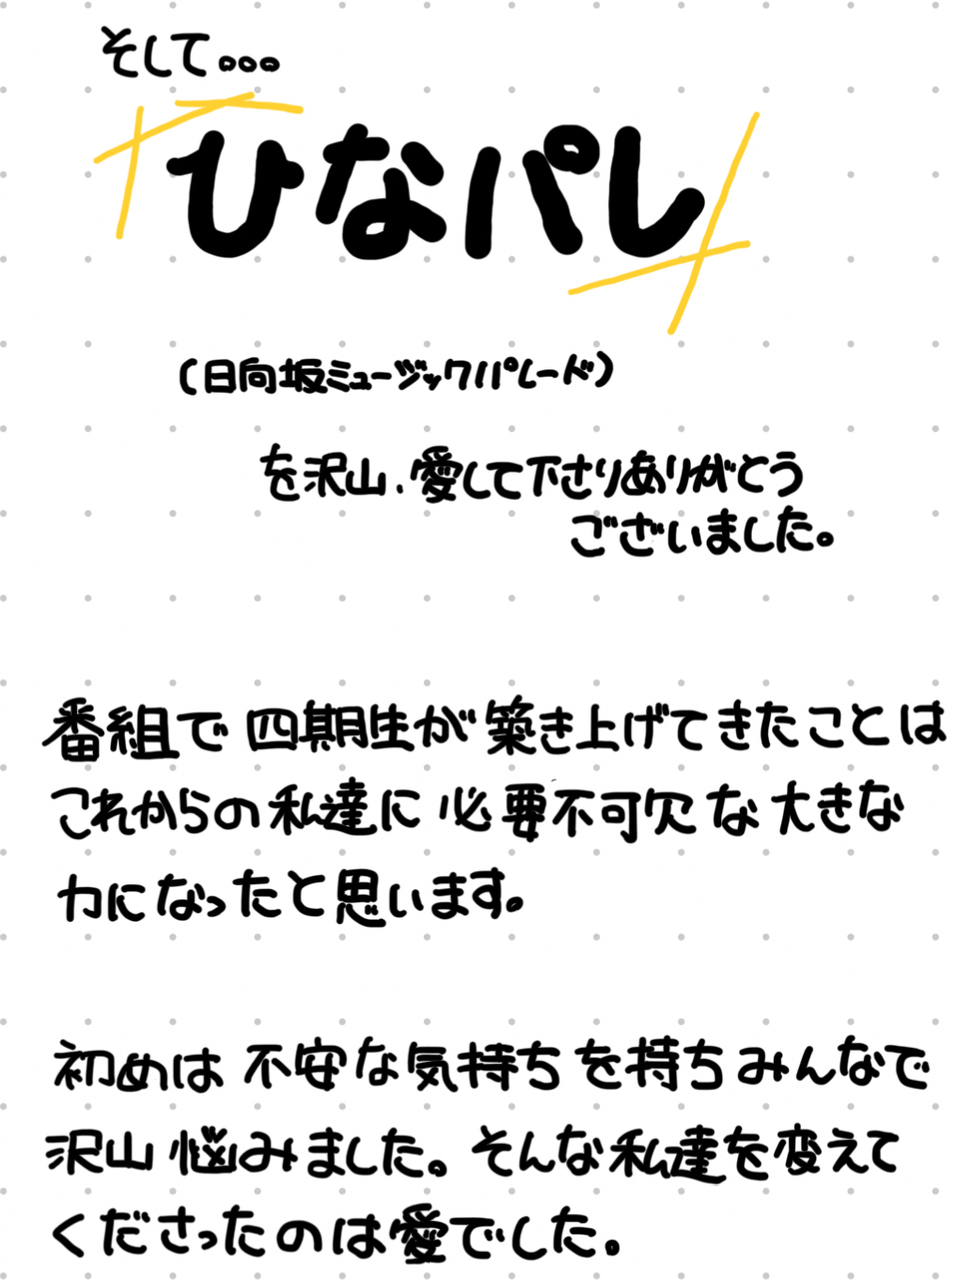 そして。。。
ひなパレ
(日向坂ミュージックパレード)
を沢山、愛して下さりありがとう
ございました。
番組で四期生が築き上げてきたことは
これからの私達に必要不可欠な大きな
力になったと思います。
初めは不安な気持ちを持ちみんなで
沢山悩みました。そんな私達を変えて
くださったのは愛でした。